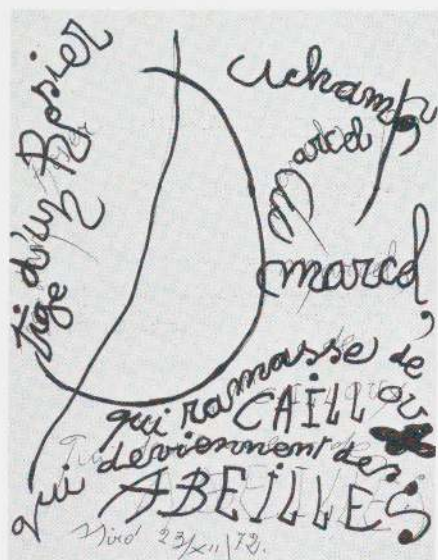 Tige d'un Rosier
Duchamp,
Marcel
marcel,
qui ramasse de
CAILLOUX
qui deviennent des
ABEILLES
Miró 23/XII/72.